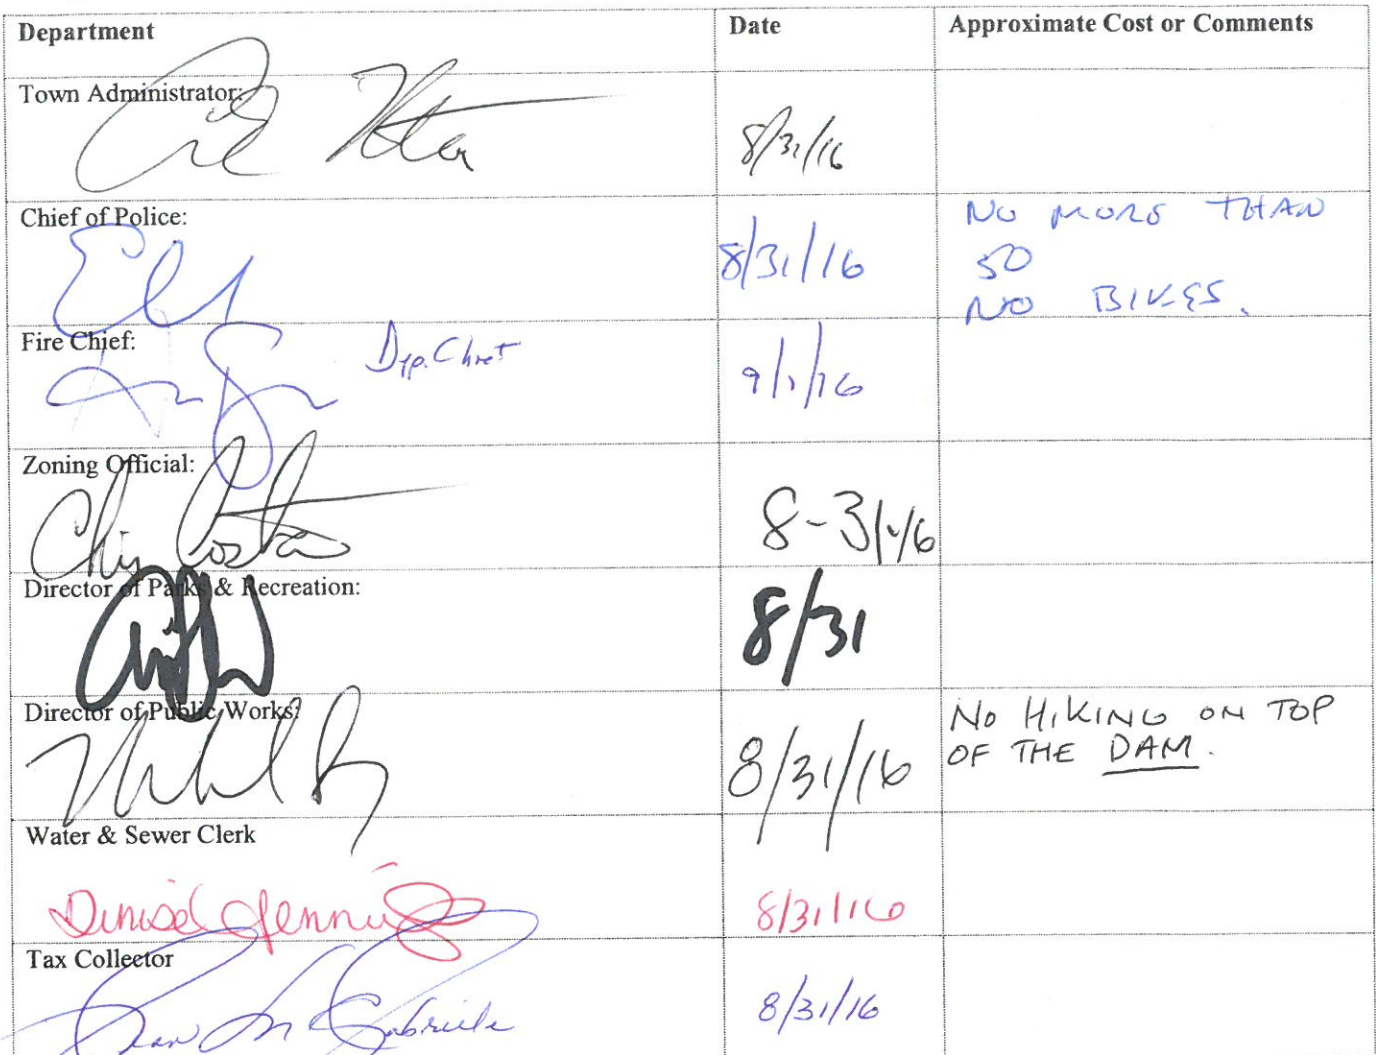 Department Date Approximate Cost or Comments
Town Administrator:
8/31/16
Chief of Police:
8/31/16
NO MORE THAN
50
NO BIKES.
Fire Chief:
Dep. Chief
9/1/16
Zoning Official:
8-31-16
Director of Parks & Recreation:
8/31
Director of Public Works:
8/31/16
NO HIKING ON TOP
OF THE DAM.
Water & Sewer Clerk
Denise Jennings
8/31/16
Tax Collector
8/31/16